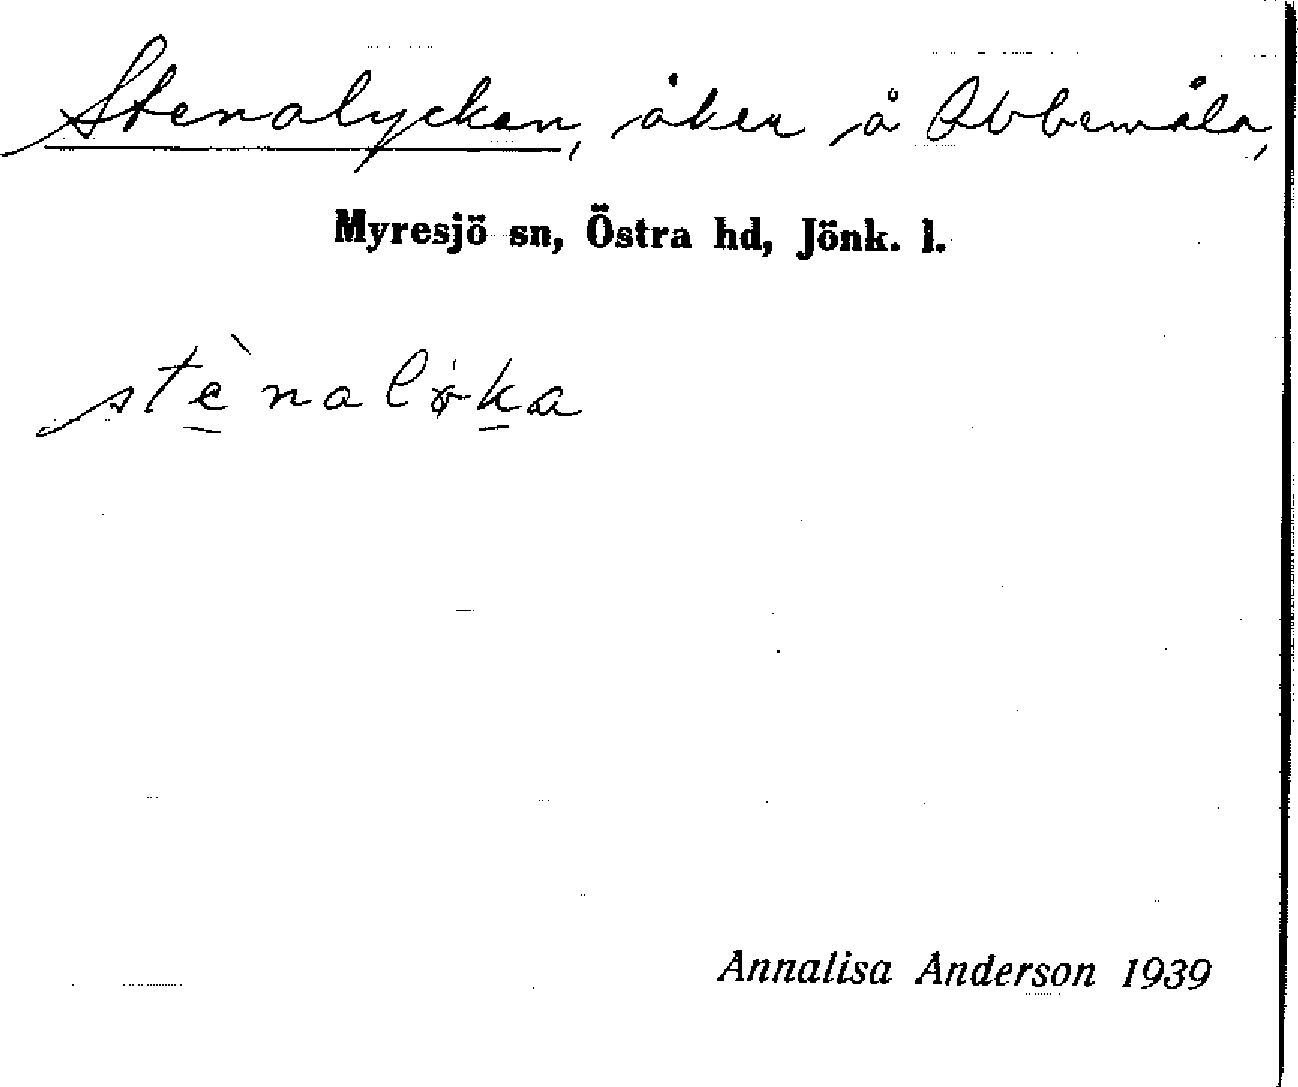 Stenalyckan, åker å Abbemåla,
Myresjö sn, Östra hd, Jönk. l.
Annalisa Anderson 1939